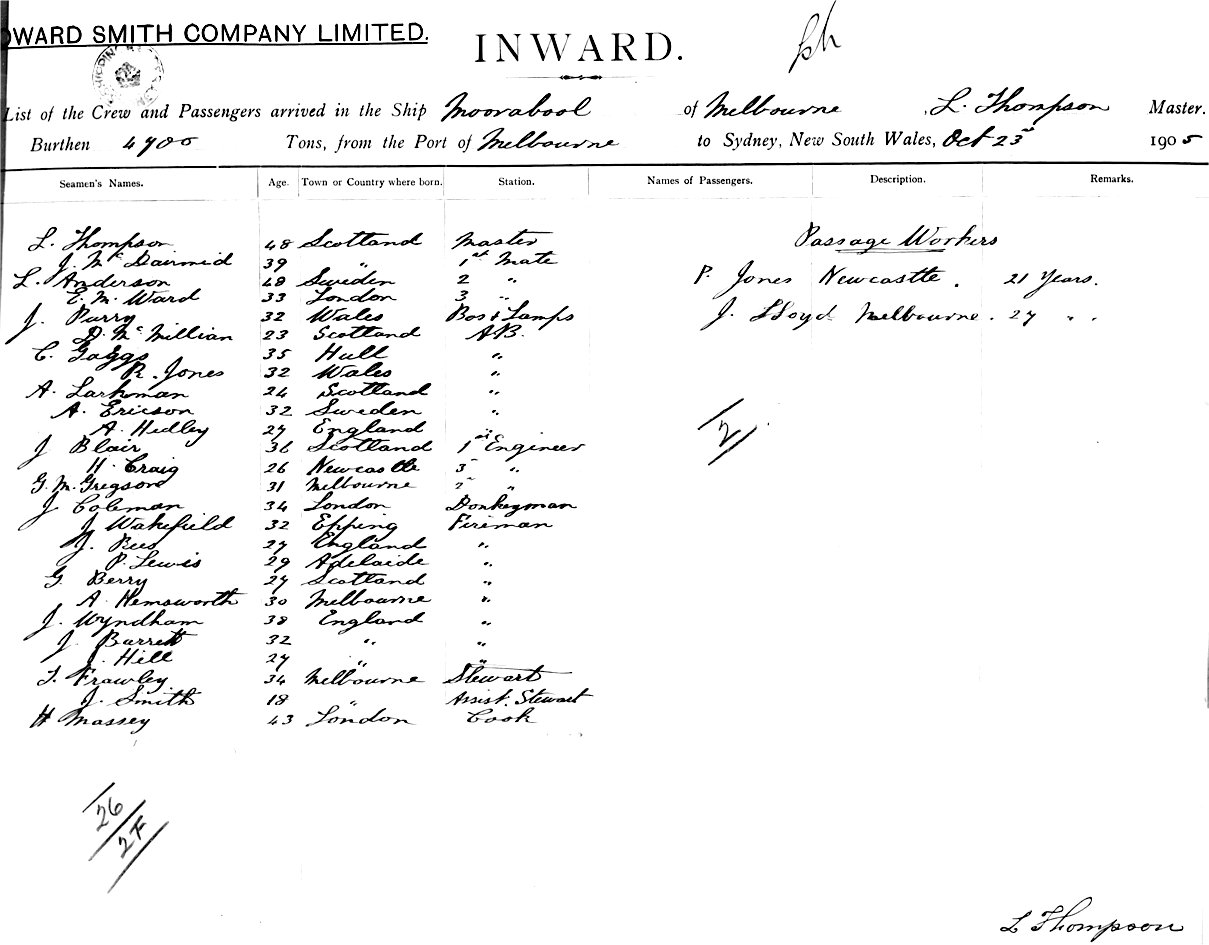 OWARD SMITH COMPANY LIMITED.
INWARD.
List of the Crew and Passengers arrived in the Ship Moorabool of Melbourne , L. Thompson Master.
Burthen 4900 Tons, from the Port of Melbourne to Sydney, New South Wales, Oct 23rd 1905
Seamen's Names. Age. Town or Country where born. Station. Names of Passengers. Description. Remarks.
L. Thompson 48 Scotland Master Passage Workers
J. McDairmid 39 " 1st Mate
L. Anderson 48 Sweden 2 " P. Jones Newcastle . 21 Years.
E. M. Ward 33 London 3 "
J. Parry 32 Wales Bos & Lamps J. LLoyd Melbourne . 27 " " .
D. McMillian 23 Scotland AB.
C. Gaggs 35 Hull "
R. Jones 32 Wales "
A. Larkman 24 Scotland "
A. Ericson 32 Sweden "
A. Hedley 27 England "
J Blair 36 Scotland 1st Engineer
H. Craig 26 Newcastle 3 "
G. M. Gregson 31 Melbourne 2 "
J Coleman 34 London Donkeyman
J Wakefield 32 Epping Fireman
J. Rees 27 England "
P. Lewis 29 Adelaide "
G Berry 27 Scotland "
A Hemsworth 30 Melbourne "
J. Wyndham 38 England "
J. Barrett 32 " "
J. Hill 27 " "
T. Frawley 34 Melbourne Stewart
J. Smith 18 " Assist. Stewart
H Massey 43 London Cook
2
26
27
L Thompson